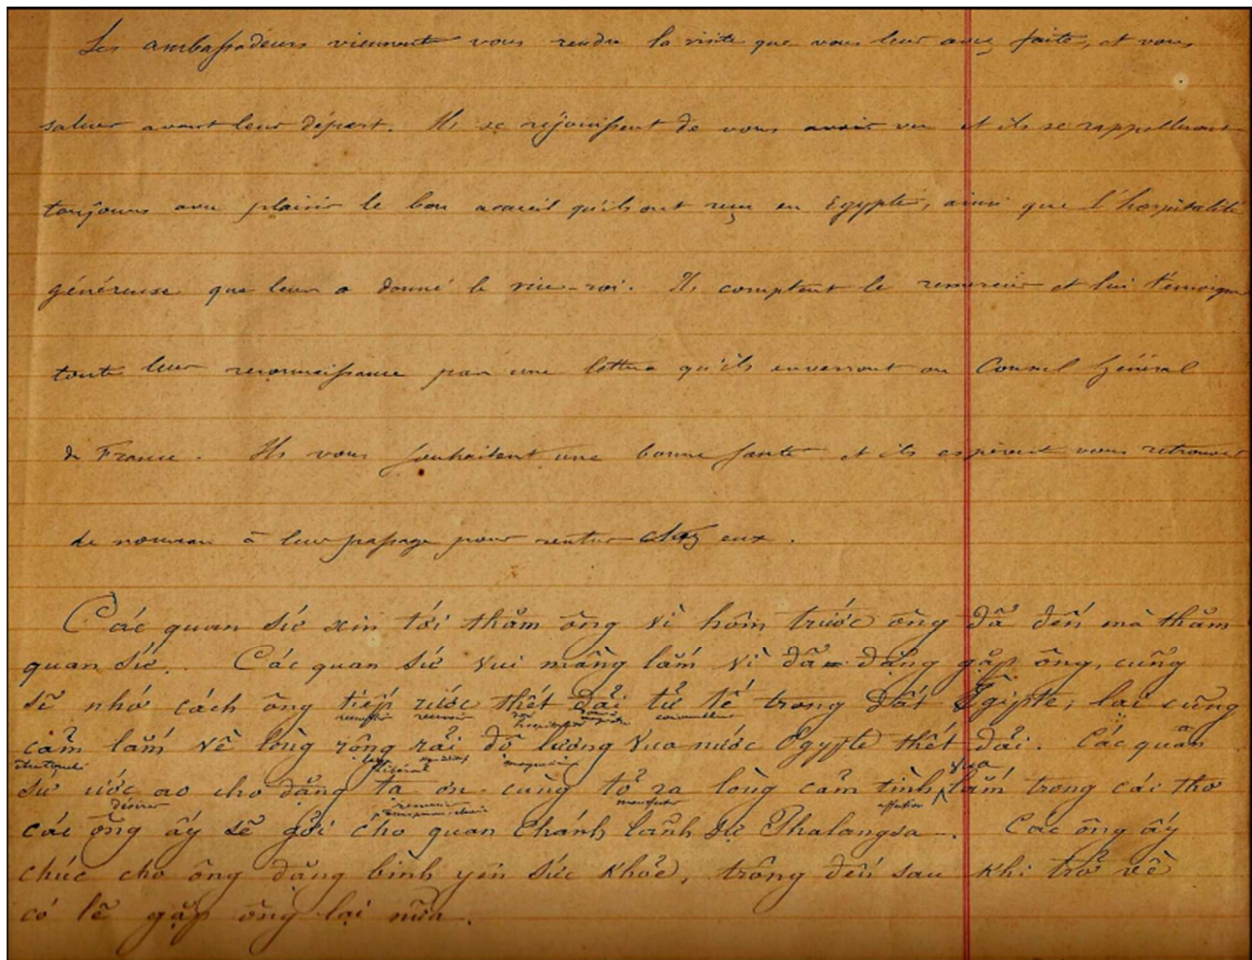 Les ambassadeurs viennent vous rendre la visite que vous leur avez faite, et vous
saluer avant leur départ. Ils se réjouissent de vous avoir vu et ils se rappelleront
toujours avec plaisir le bon accueil qu'ils ont reçu en Egypte, ainsi que l'hospitalité
généreuse que leur a donné le vice-roi. Ils comptent le remercier et lui témoigner
toute leur reconnaissance par une lettre qu'ils enverront au Consul Général
de France. Ils vous souhaitent une bonne santé et ils espèrent vous retrouver
de nouveau à leur passage pour rentrer chez eux.
Các quan sứ xin tới thăm ông vì hôm trước ông đã đến mà thăm
quan sứ. Các quan sứ vui mầng lắm vì đã đặng gặp ông, cũng
sẽ nhớ cách ông tiếp rước thết đãi tử tế trong đất Egipte, lại cũng
cảm lắm về lòng rộng rãi độ lượng vua nước Egypte thết đãi. Các quan
libéral
sứ ước ao cho đặng tạ ơn cùng tỏ ra lòng cảm tình vua lắm trong các thơ
désirer manifester affection
các ông ấy sẽ gởi cho quan Chánh lãnh sự Phalangsa. Các ông ấy
chúc cho ông đặng bình yên sức khỏe, trông đến sau khi trở về
có lẽ gặp ông lại nữa.